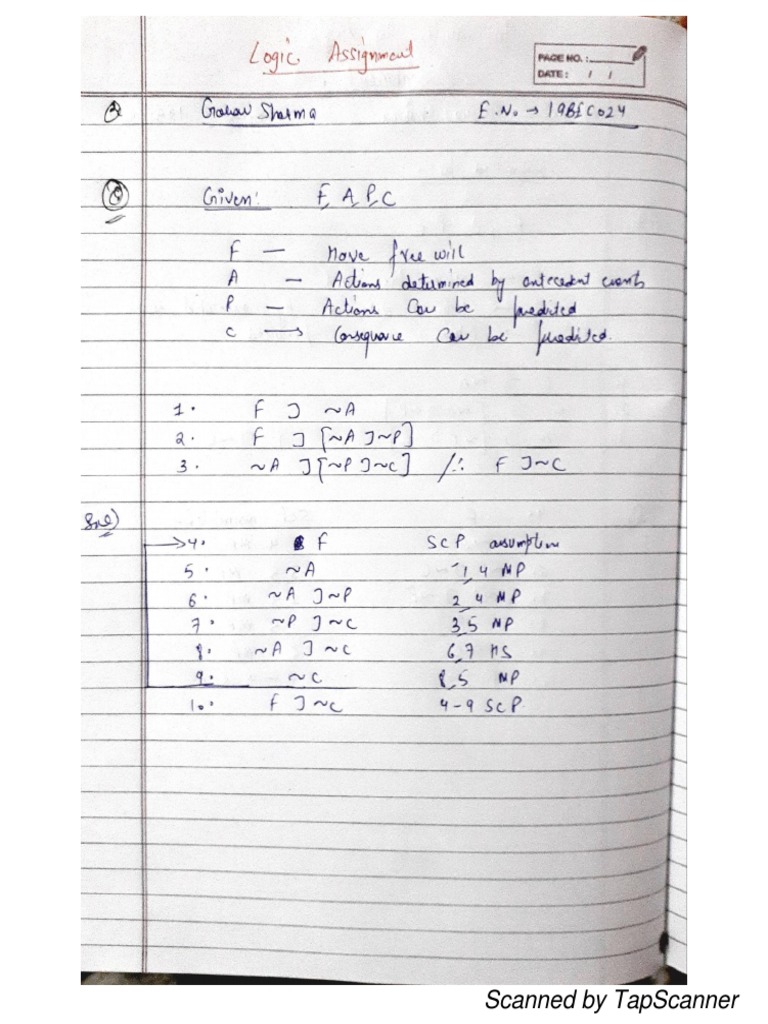 Logic Assignment
PAGE NO.:
DATE: / /
Sharma E.No. → 19BEC024
Given: F, A, P, C
F — Have free will
A — Actions determined by antecedent events
P — Actions Can be predicted
C → Consequence Can be predicted.
1. F ⊃ ~A
2. F ⊃ [~A ⊃ ~P]
3. ~A ⊃ [~P ⊃ ~C] /∴ F ⊃ ~C
Sol)
→ 4. F SCP assumption
5. ~A 1,4 MP
6. ~A ⊃ ~P 2,4 MP
7. ~P ⊃ ~C 3,5 MP
8. ~A ⊃ ~C 6,7 HS
9. ~C 8,5 MP
10. F ⊃ ~C 4-9 SCP.
Scanned by TapScanner